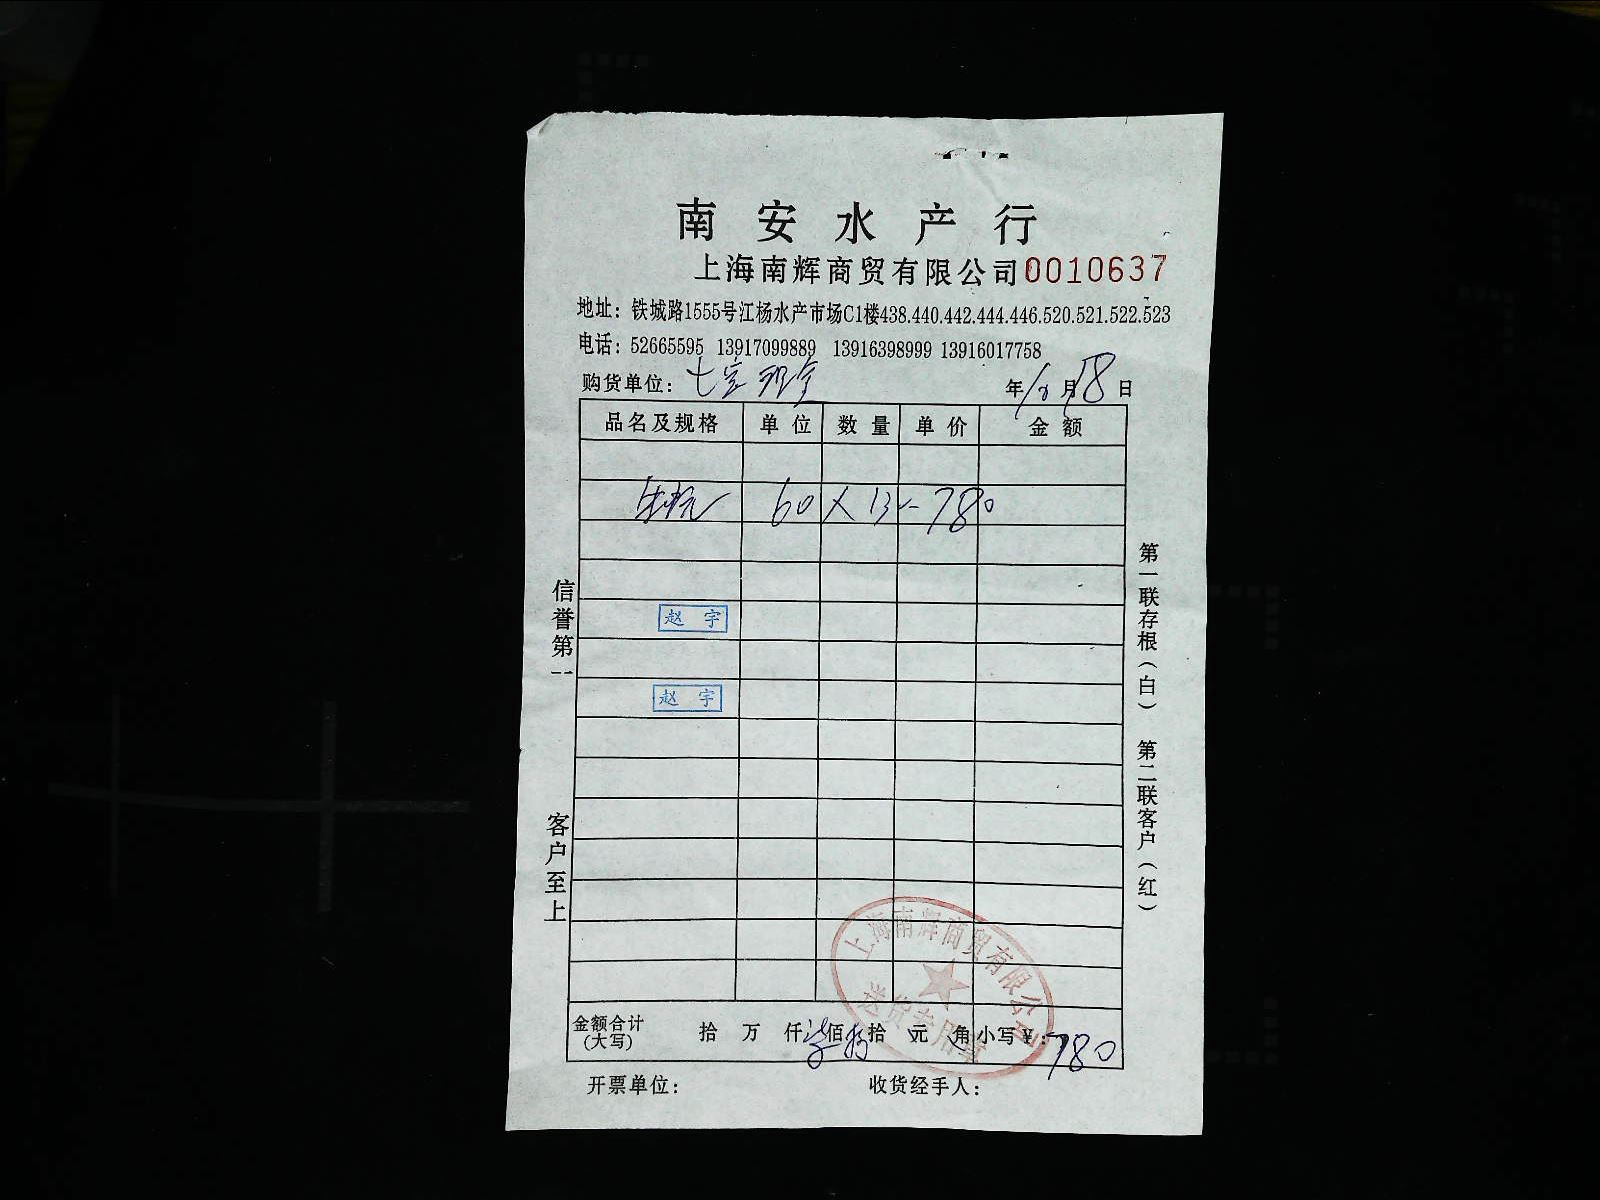 南安水产行
上海南辉商贸有限公司 0010637
地址：铁城路1555号江杨水产市场C1楼438.440.442.444.446.520.521.522.523
电话：52665595 13917099889 13916398999 13916017758
购货单位：七宝 年 月18日
品名及规格 单位 数量 单价 金额
60 X 13 - 780
赵 宇
赵 宇
信誉第一
客户至上
第一联存根（白） 第二联客户（红）
上海南辉商贸有限公司
送货专用章
金额合计（大写） 拾 万 仟 柒 佰 捌 拾 元 角 小写￥：780
开票单位： 收货经手人：